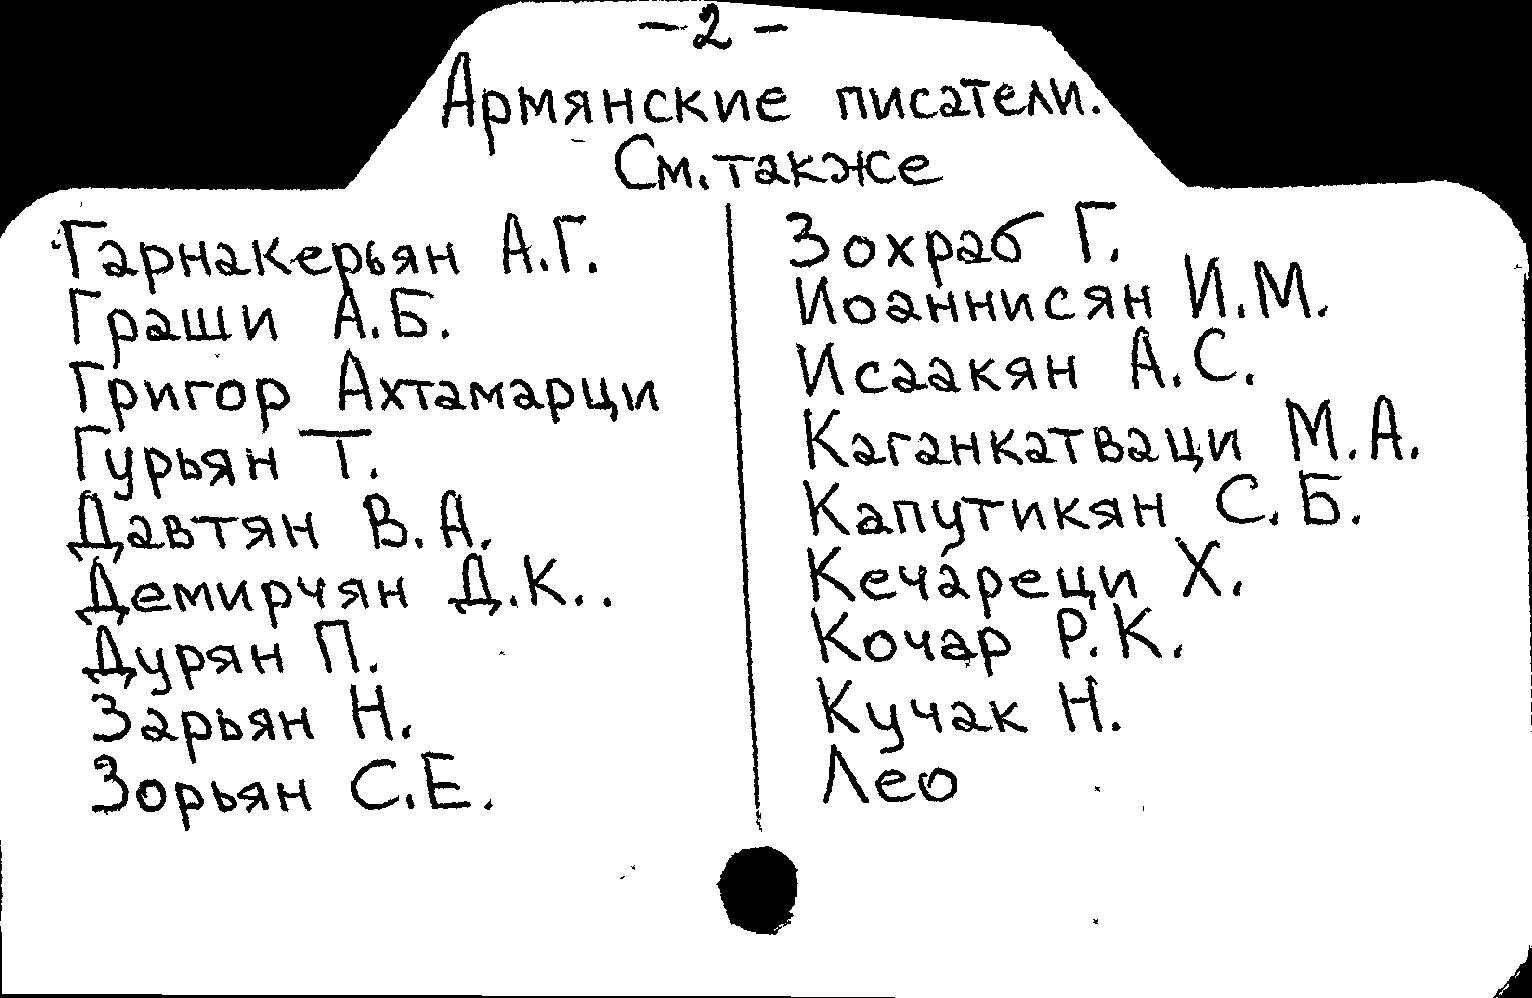 – 2 –
Армянские писатели.
См. также
Гарнакерьян А.Г.
Граши А.Б.
Григор Ахтамарци
Гурьян Т.
Давтян В.А.
Демирчян Д.К..
Дурян П.
Зарьян Н.
Зорьян С.Е.
Зохраб Г.
Иоаннисян И.М.
Исаакян А.С.
Каганкатваци М.А.
Капутикян С.Б.
Кечареци Х.
Кочар Р.К.
Кучак Н.
Лео